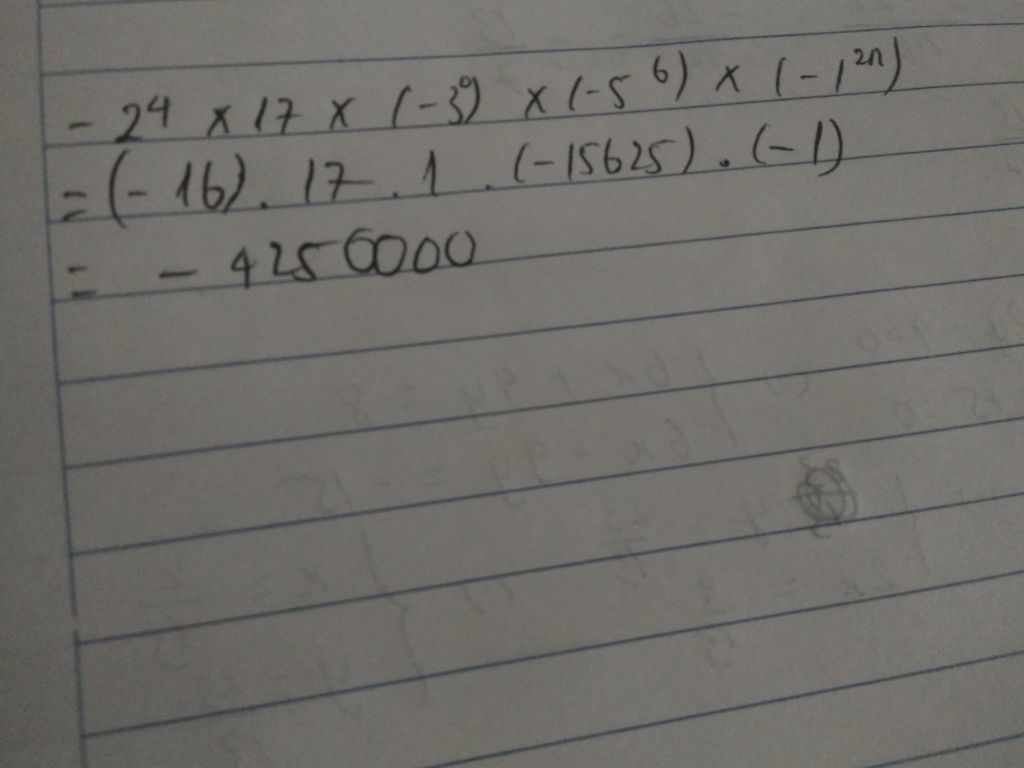 - 2⁴ × 17 × (-3⁰) × (-5⁶) × (-1²ⁿ)
= (-16) . 17 . 1 . (-15625) . (-1)
= - 4250000